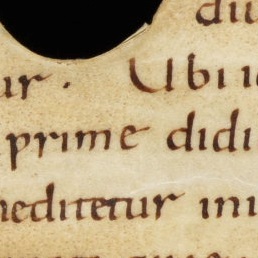 du
ur. Ubi u
prime didi
neditetur ini